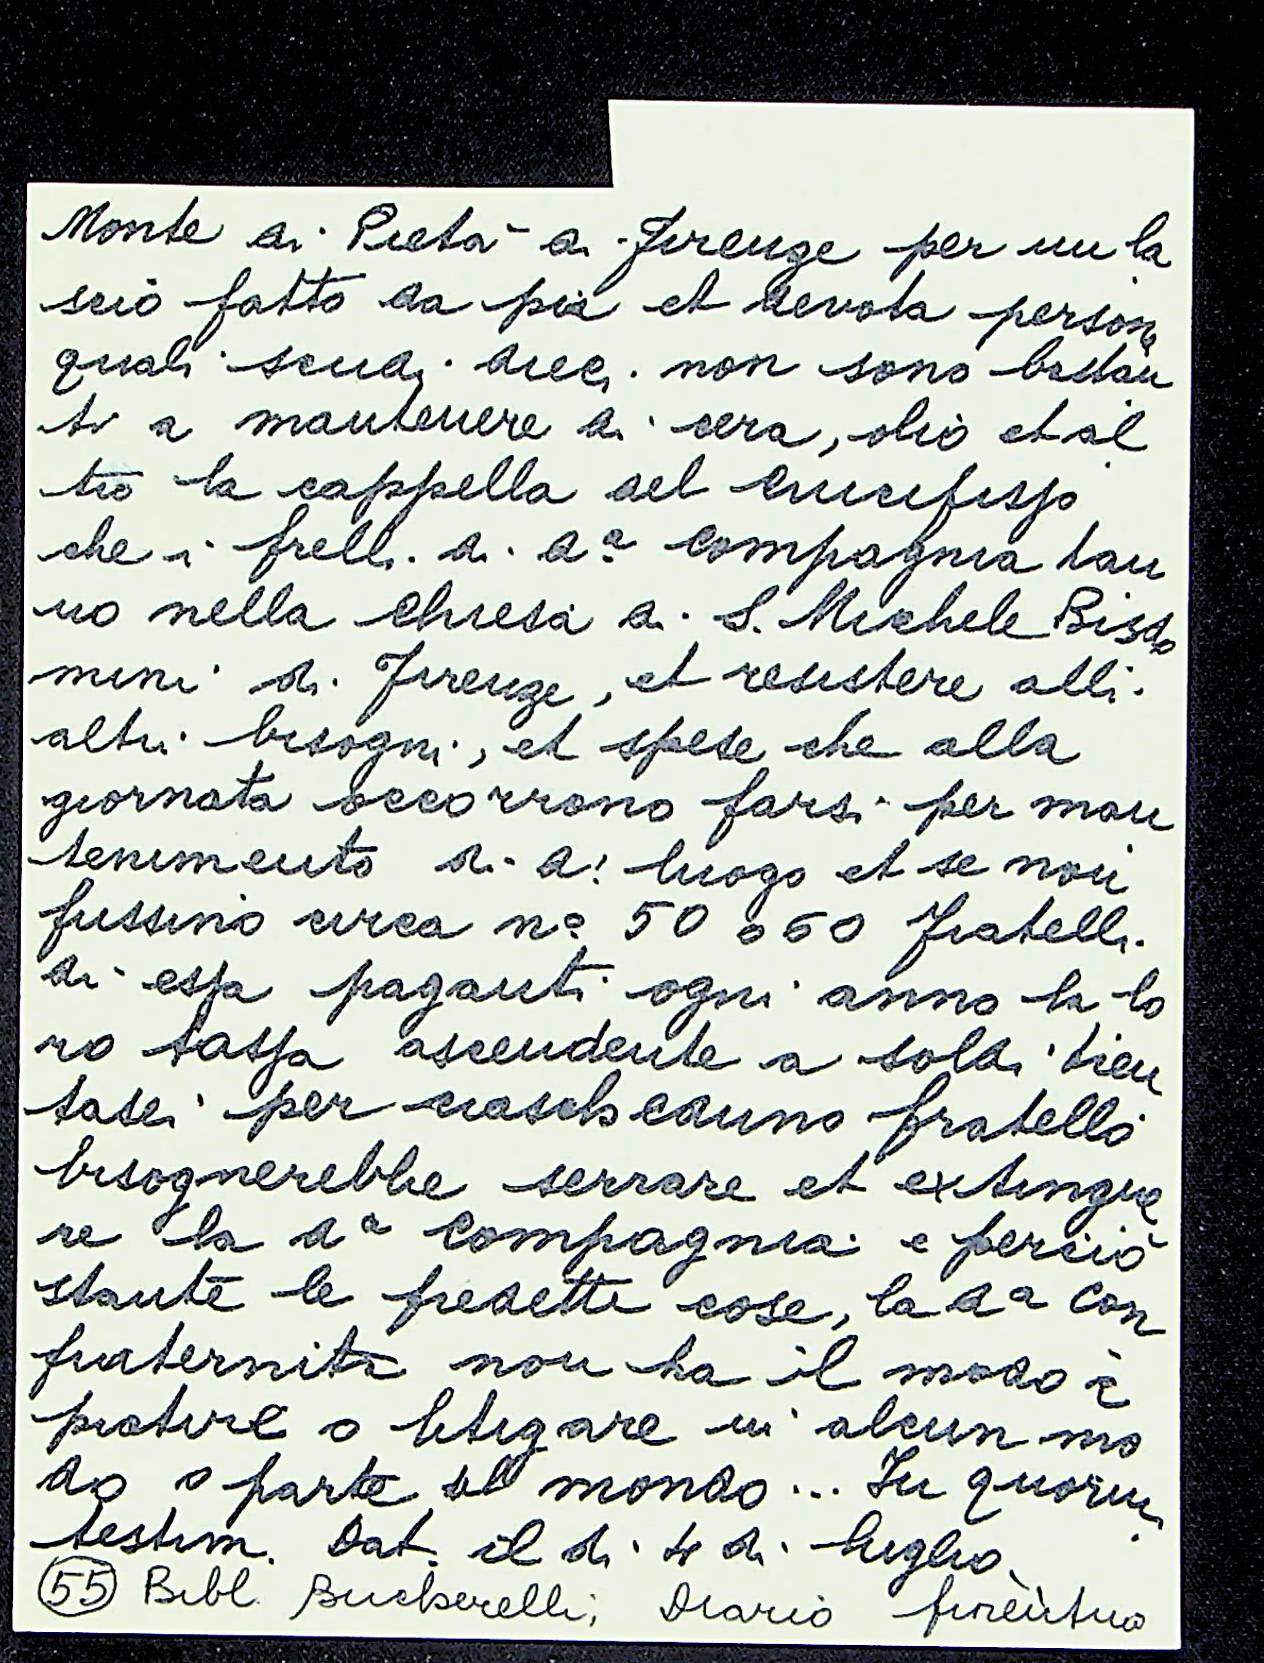 Monte di Pietà di Firenze per un la
scio fatto da pia et devota persona
quali scudi dieci non sono bastan
ti a mantenere di cera, olio et al
tro la cappella del Crucifisso
che i frelli. di da Compagnia han
no nella Chiesa di S. Michele Bisdo
mini di Firenze, et resistere alli
altri bisogni, et spese che alla
giornata occorrono farsi per man
tenimento di d. luogo et se non
fussino circa no 50 o 60 Fratelli
di essa paganti ogni anno la lo
ro tassa ascendente a soldi tren
tasei per ciascheduno fratello
bisognerebbe serrare et extingue
re la da Compagnia e perciò
stante le predette cose, la da Con
fraternita non ha il modo è
piatire o litigare in alcun mo
do o parte del mondo... In quorum
testim. Dat. il di 4 di luglio
(55) Bibl. Diario fiorentino